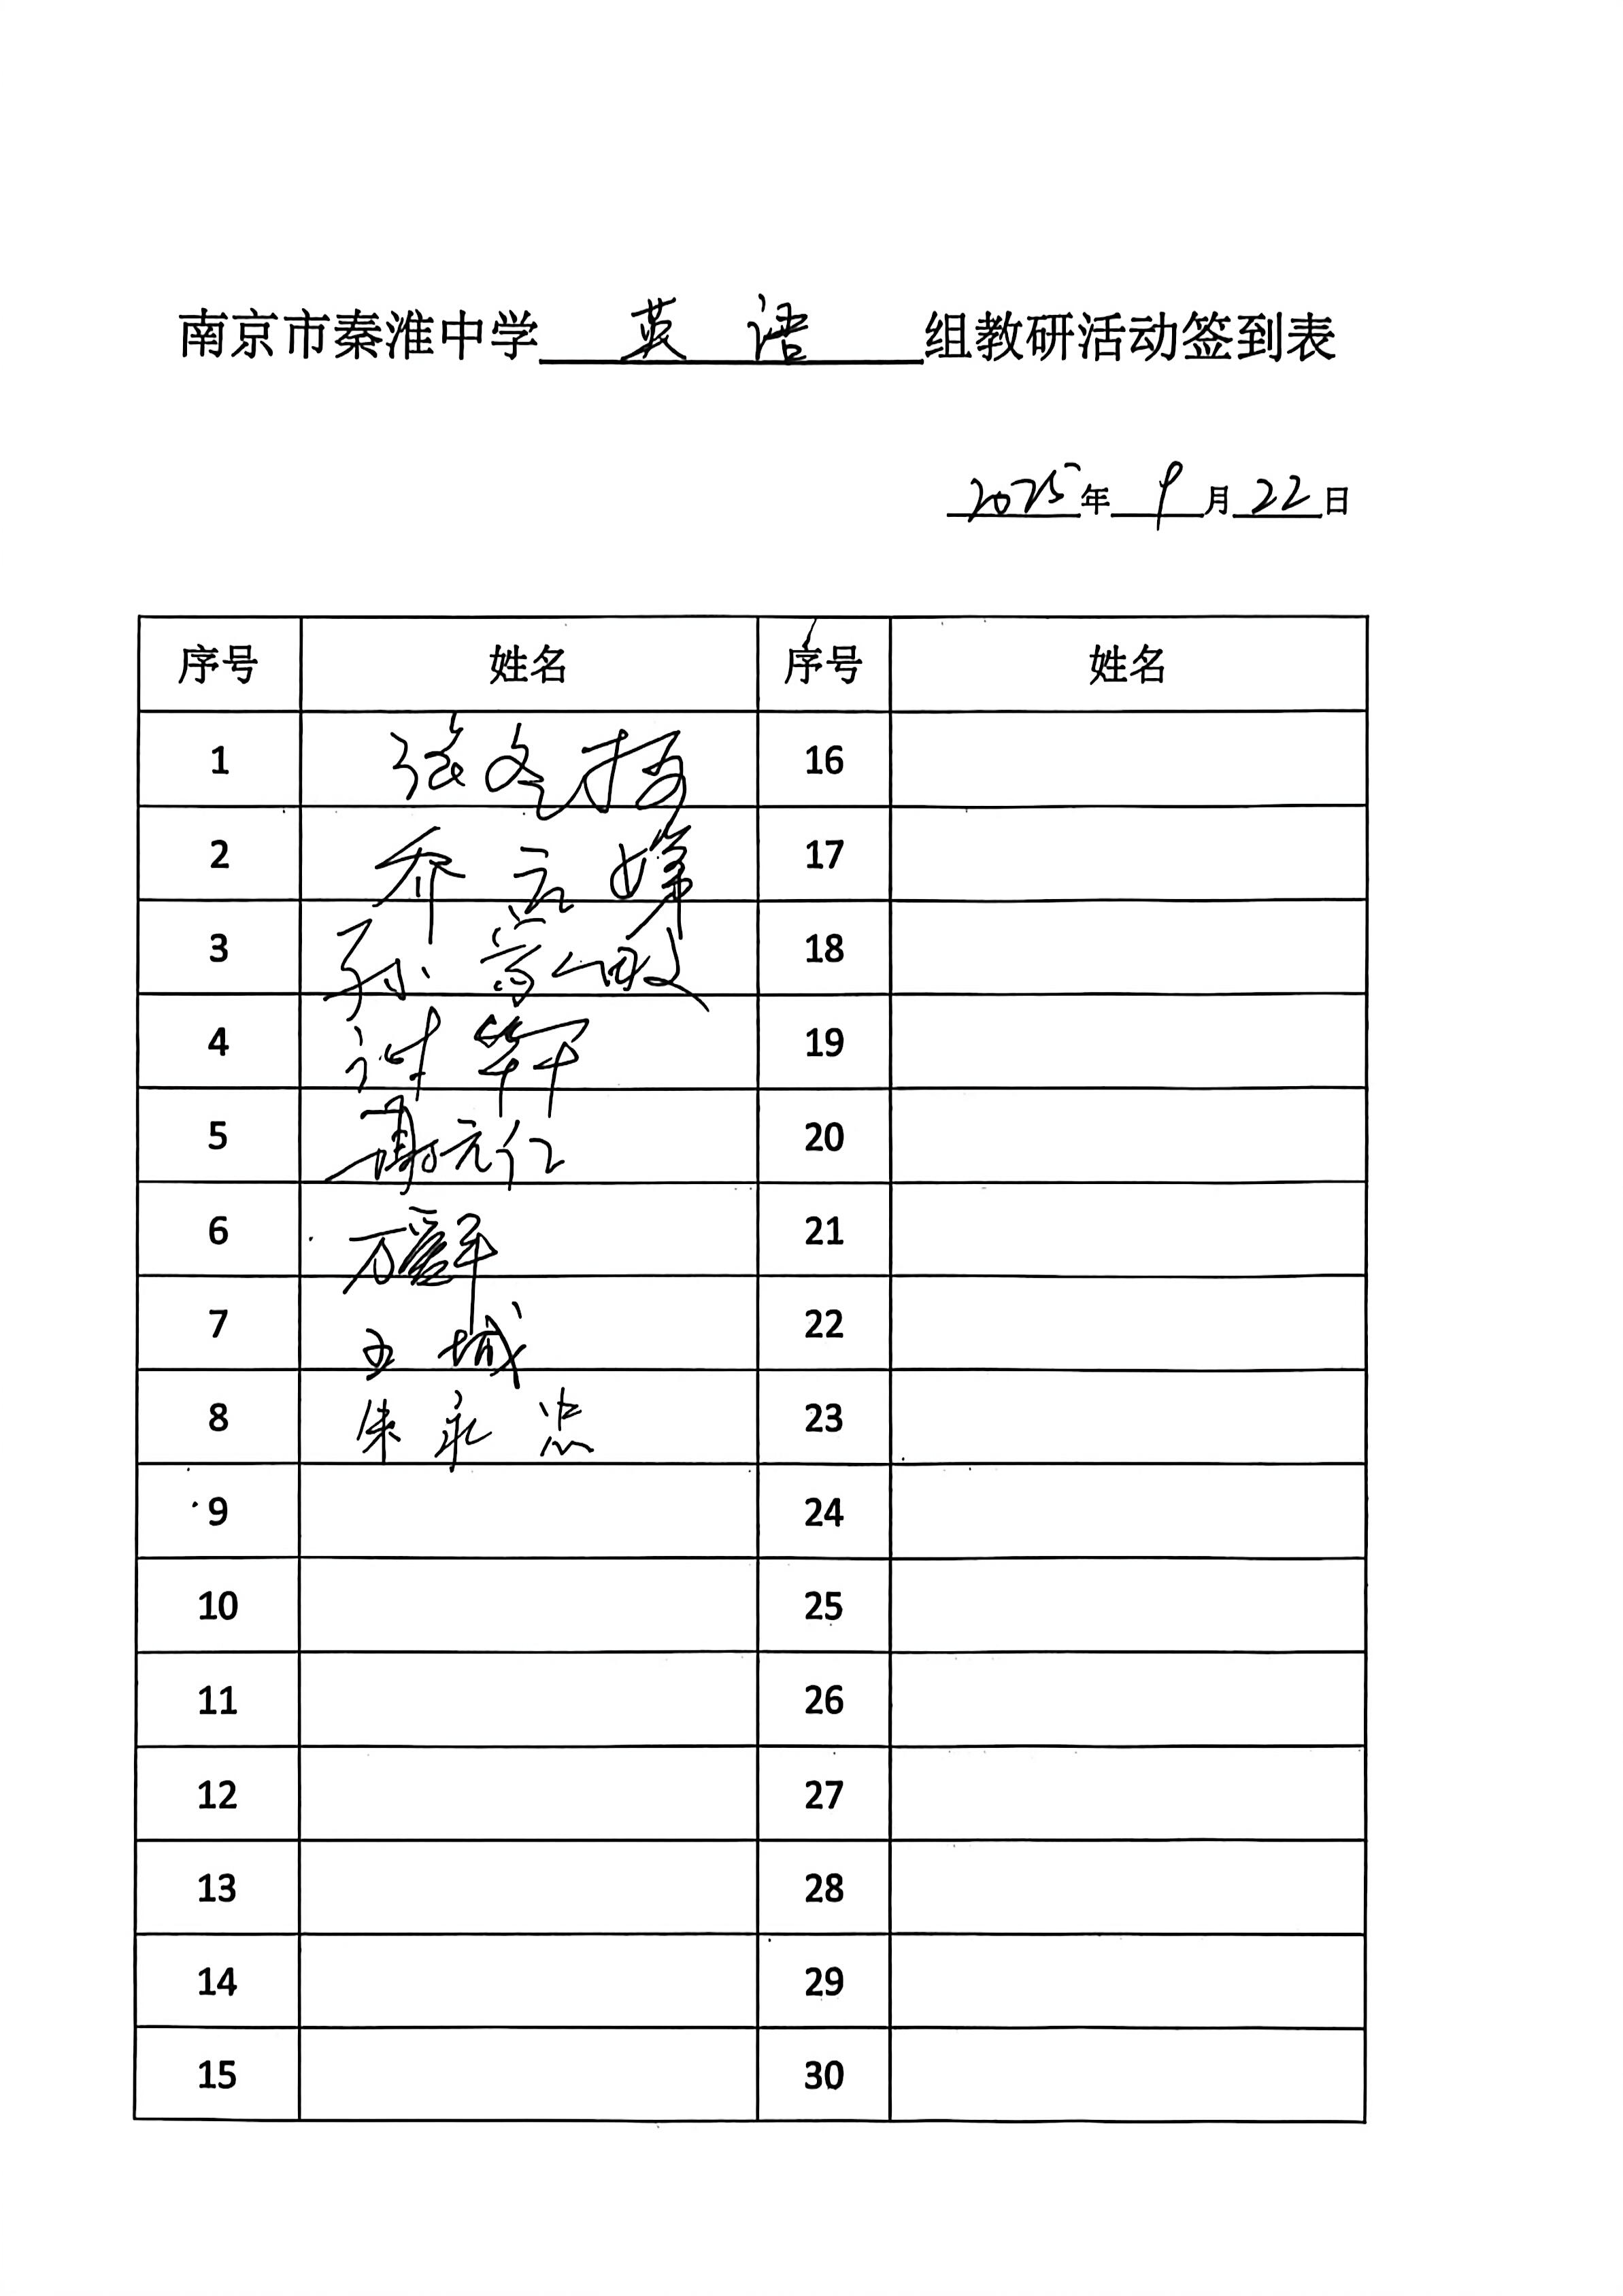 南京市秦淮中学 英语 组教研活动签到表
2025年 9月22日
序号 姓名 序号 姓名
1 张 16
2 乔云娣 17
3 孙 18
4 谢 19
5 谢元仁 20
6 万 21
7 王城 22
8 朱永忠 23
9 24
10 25
11 26
12 27
13 28
14 29
15 30